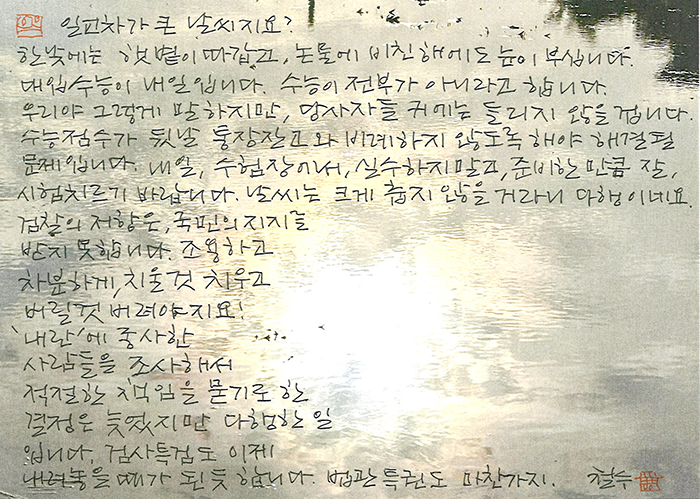 일교차가 큰 날씨지요?
한낮에는 햇볕이 따갑고, 논물에 비친 해에도 눈이 부십니다.
대입수능이 내일입니다. 수능이 전부가 아니라고 합니다.
우리야 그렇게 말하지만, 당사자들 귀에는 들리지 않을 겁니다.
수능점수가 뒷날 통장잔고와 비례하지 않도록 해야 해결될
문제입니다. 내일, 수험장에서, 실수하지말고, 준비한 만큼 잘,
시험치르기 바랍니다. 날씨는 크게 춥지 않을 거라니 다행이네요.
검찰의 저항은, 국민의 지지를
받지 못합니다. 조용하고
차분하게, 치울것 치우고
버릴것 버려야지요!
'내란'에 종사한
사람들을 조사해서
적절한 책임을 묻기로 한
결정은 늦었지만 다행한 일
입니다. 검사특검도 이제
내려놓을 때가 된 듯 합니다. 법관 특권도 마찬가지. 철수